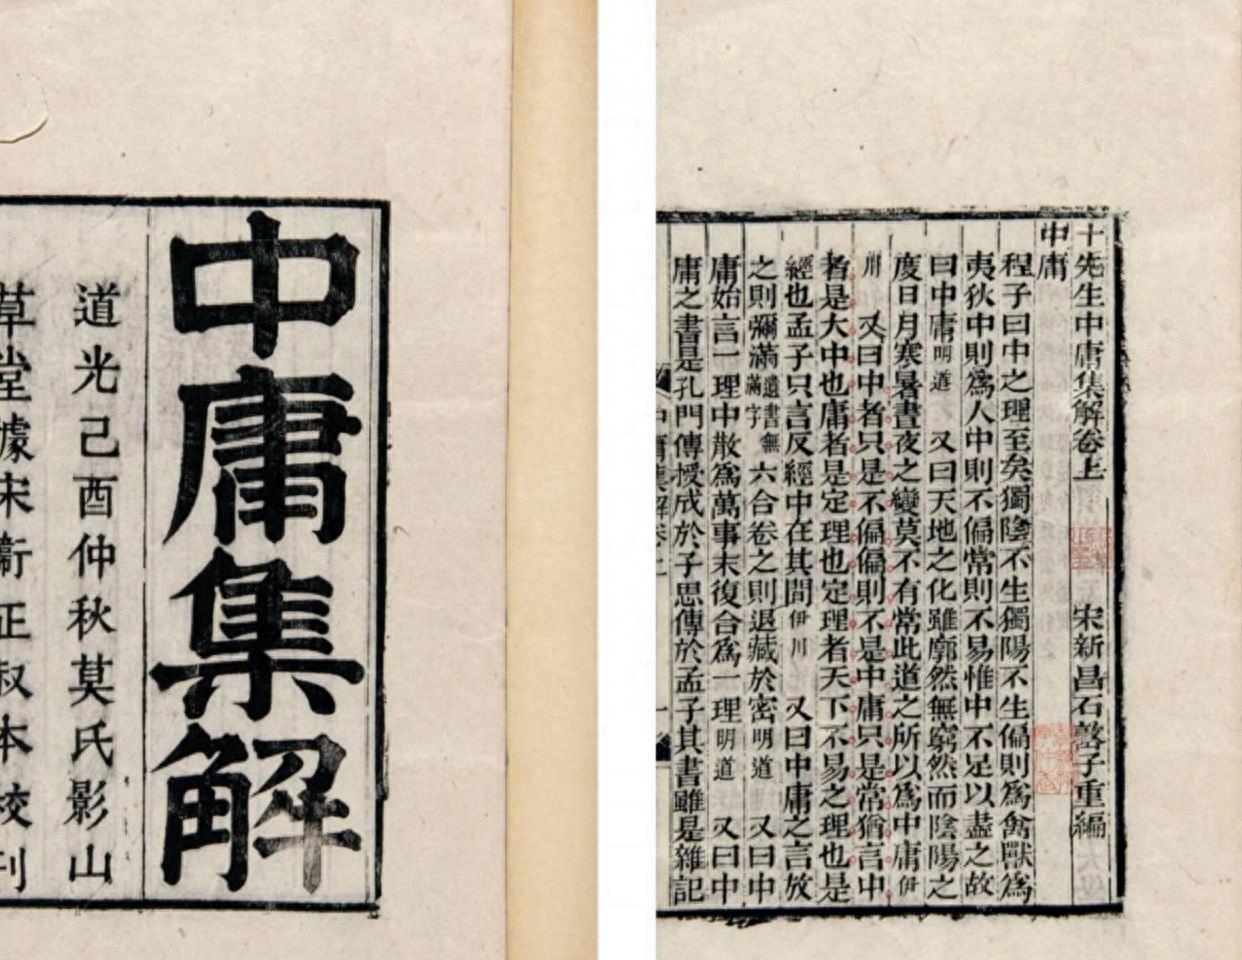 中庸集解
道光己酉仲秋莫氏影山
草堂據宋衛正叔本校刊
十先生中庸集解卷上 宋新昌石𡼖子重編
中庸
程子曰中之理至矣獨陰不生獨陽不生偏則爲禽獸爲
夷狄中則爲人中則不偏常則不易惟中不足以盡之故
曰中庸明道 又曰天地之化雖廓然無窮然而陰陽之
度日月寒暑晝夜之變莫不有常此道之所以爲中庸伊
川 又曰中者只是不偏偏則不是中庸只是常猶言中
者是大中也庸者是定理也定理者天下不易之理也是
經也孟子只言反經中在其間伊川 又曰中庸之言放
之則彌滿遺書無滿字六合卷之則退藏於密明道 又曰中
庸始言一理中散爲萬事末復合爲一理明道 又曰中
庸之書是孔門傳授成於子思傳於孟子其書雖是雜記